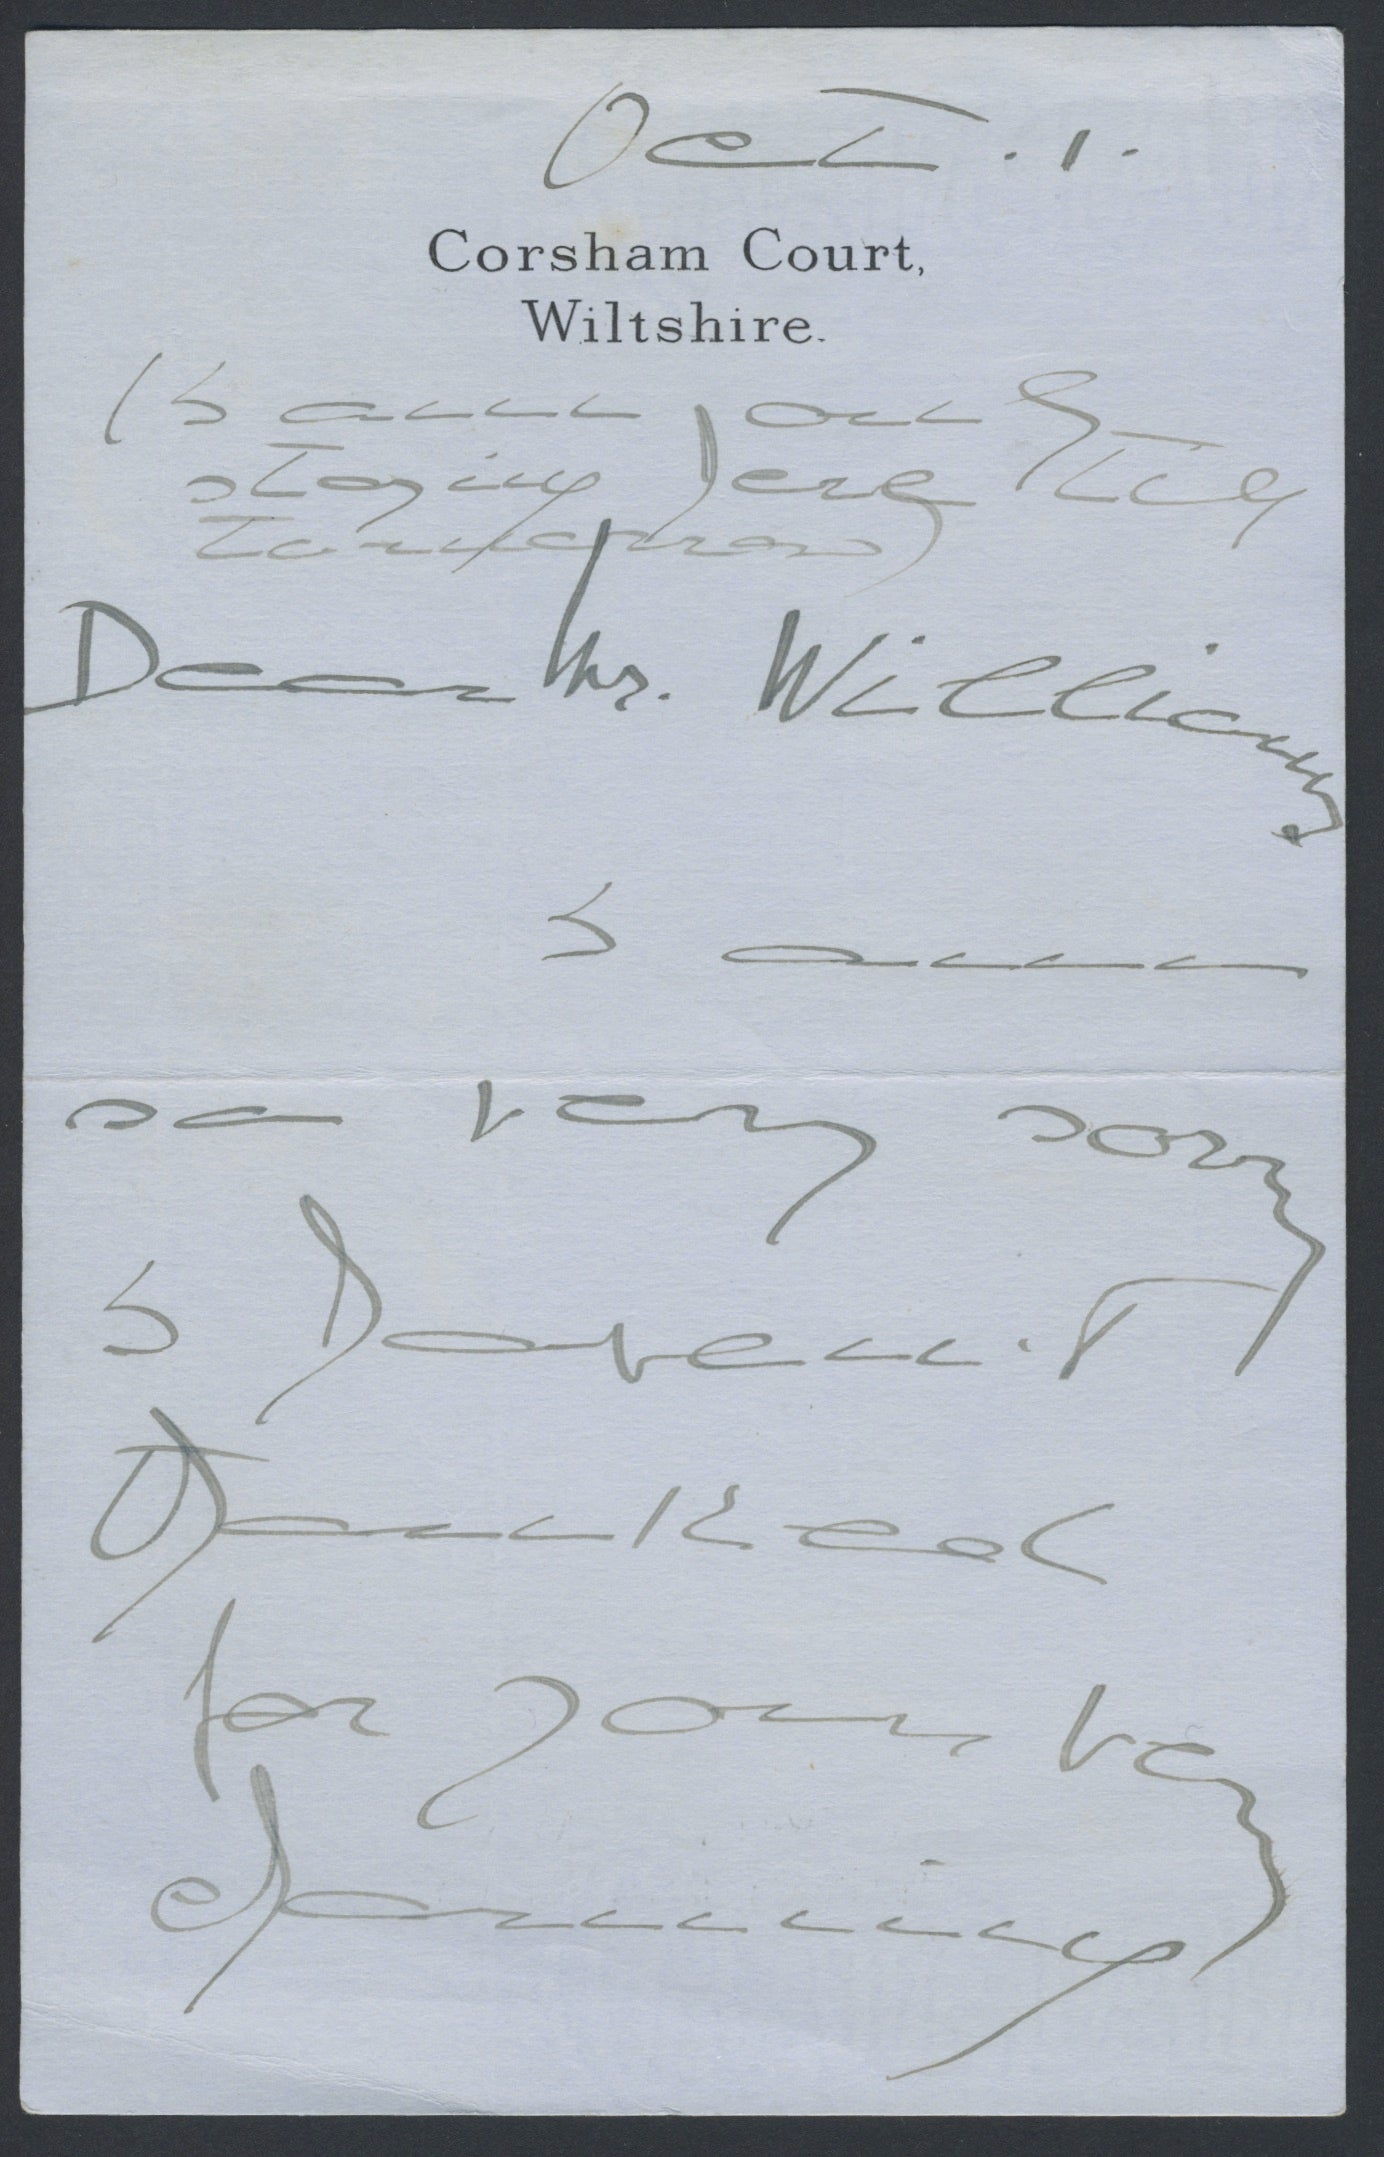 Oct. 1.
Corsham Court,
Wiltshire.
(I am only
staying here till
tomorrow)
Dear Mr. Williams,
I am
so very sorry
I haven't
thanked
for your very
charming